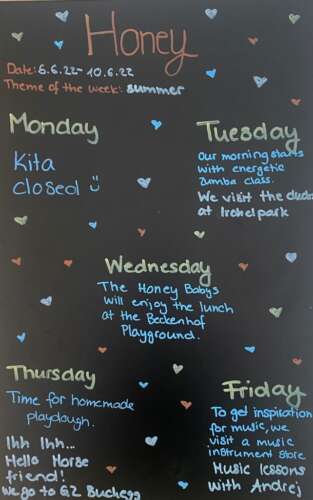 Honey
Date: 6.6.22- 10.6.22
Theme of the week: summer
Monday
Kita
closed
Tuesday
Our morning starts
with energetic
Zumba class.
We visit the
at Irchelpark
Wednesday
The Honey Babys
will enjoy the lunch
at the Beckenhof
Playground.
Thursday
Time for homemade
playdough.
Ihh Ihh...
Hello Horse
friend!
We go to GZ Buchegg
Friday
To get inspiration
for music, we
visit a music
instrument store
Music lessons
with Andrej